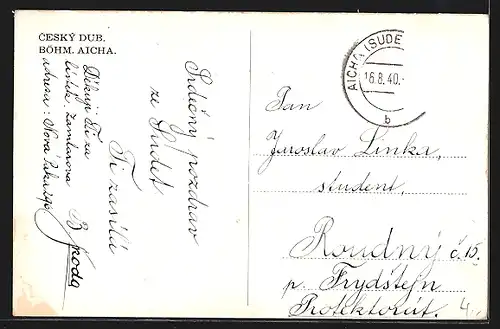 ČESKÝ DUB.
BÖHM. AICHA.
Srdečný pozdrav
ze Sudet
Ti zasílá
B Špoda
Děkuji Ti za
lístek.
adresu: Nová
AICHA (SUDE
16.8.40.-
b
Pan
Jaroslav Linka,
student,
Roudný č. 15.
p. Frydštejn
Protektorát.
4